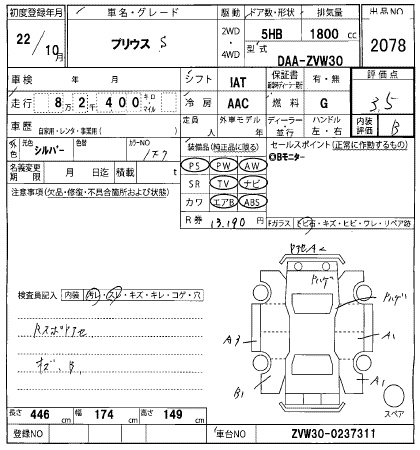 初度登録年月 車名・グレード 駆動 ドア数・形状 排気量 出品NO
22/10月 プリウス S 2WD・4WD 5HB 1800cc 2078
型式 DAA-ZVW30
車検 年 月 シフト IAT 保証書 有・無 評価点
走行 8万2千400キロ・マイル 冷房 AAC 燃料 G 3.5
車歴 自家用・レンタ・事業用( ) 定員 人 外車モデル 年 ディーラー・並行 ハンドル 左・右 内装評価 B
外色 元色 シルバー 色替 カラーNO 1F7 装備品(純正品に限る) セールスポイント(正常に作動するもの)
名義変更期限 月 日迄 積載 t PS PW AW ⓪Bモニター
注意事項(欠品・修復・不具合箇所および状態) SR TV ナビ
カワ エアB ABS
R券 13,190円 Fガラス トビ石・キズ・ヒビ・ワレ・リペア跡
検査員記入 内装 汚レ・スレ・キズ・キレ・コゲ・穴
A3
A1
B1
A1
スペア
キズ、B
長さ 446cm 幅 174cm 高さ 149cm
登録NO 車台NO ZVW30-0237311